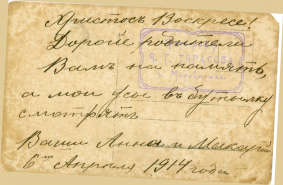 Христосъ Воскресе!
Дорогіе родители
Вамъ на память,
а мои усы въ бутылку
смотрятъ
Ваши Анна и Макарій
6го Апреля 1914 годъ